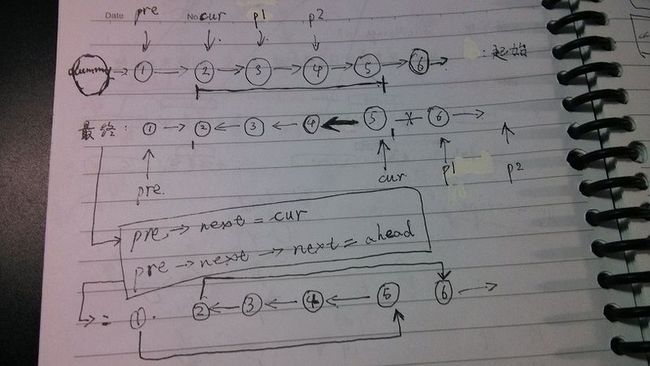 Date pre No. cur p1 p2
dummy → ① → ② → ③ → ④ → ⑤ → ⑥ → : 起始
最终: ① → ② ← ③ ← ④ ← ⑤ ⑥ →
pre cur p1 p2
pre → next = cur
pre → next → next = ahead
① ② ← ③ ← ④ ← ⑤ ⑥ →